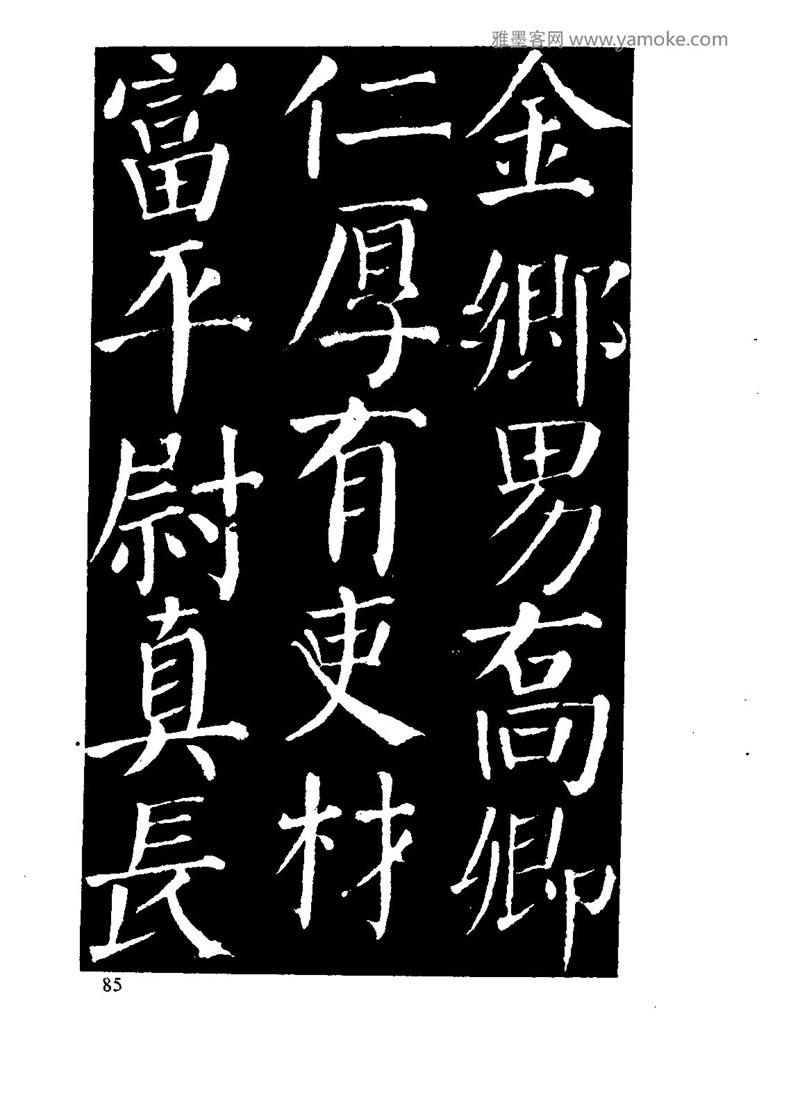 雅墨客网 www.yamoke.com
金鄉男喬卿
仁厚有吏材
富平尉真長
85